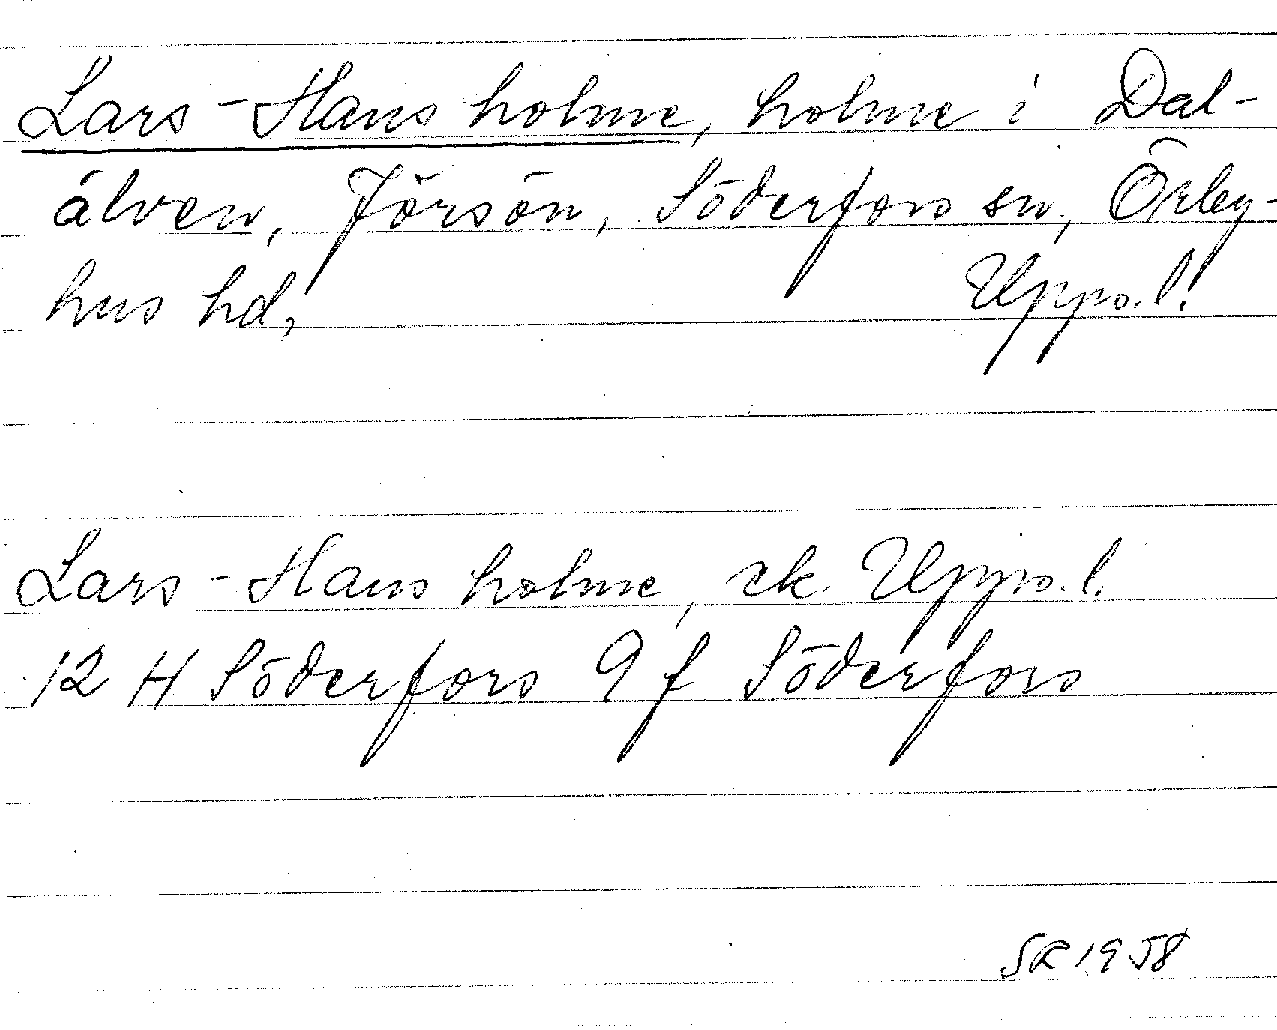 Lars-Hans holme, holme i Dal-
älven, Jörsön, Söderfors sn, Örby-
hus hd, Upps. l.
Lars-Hans holme, ek Upps. l.
12 H Söderfors 9 f Söderfors
SR 1958